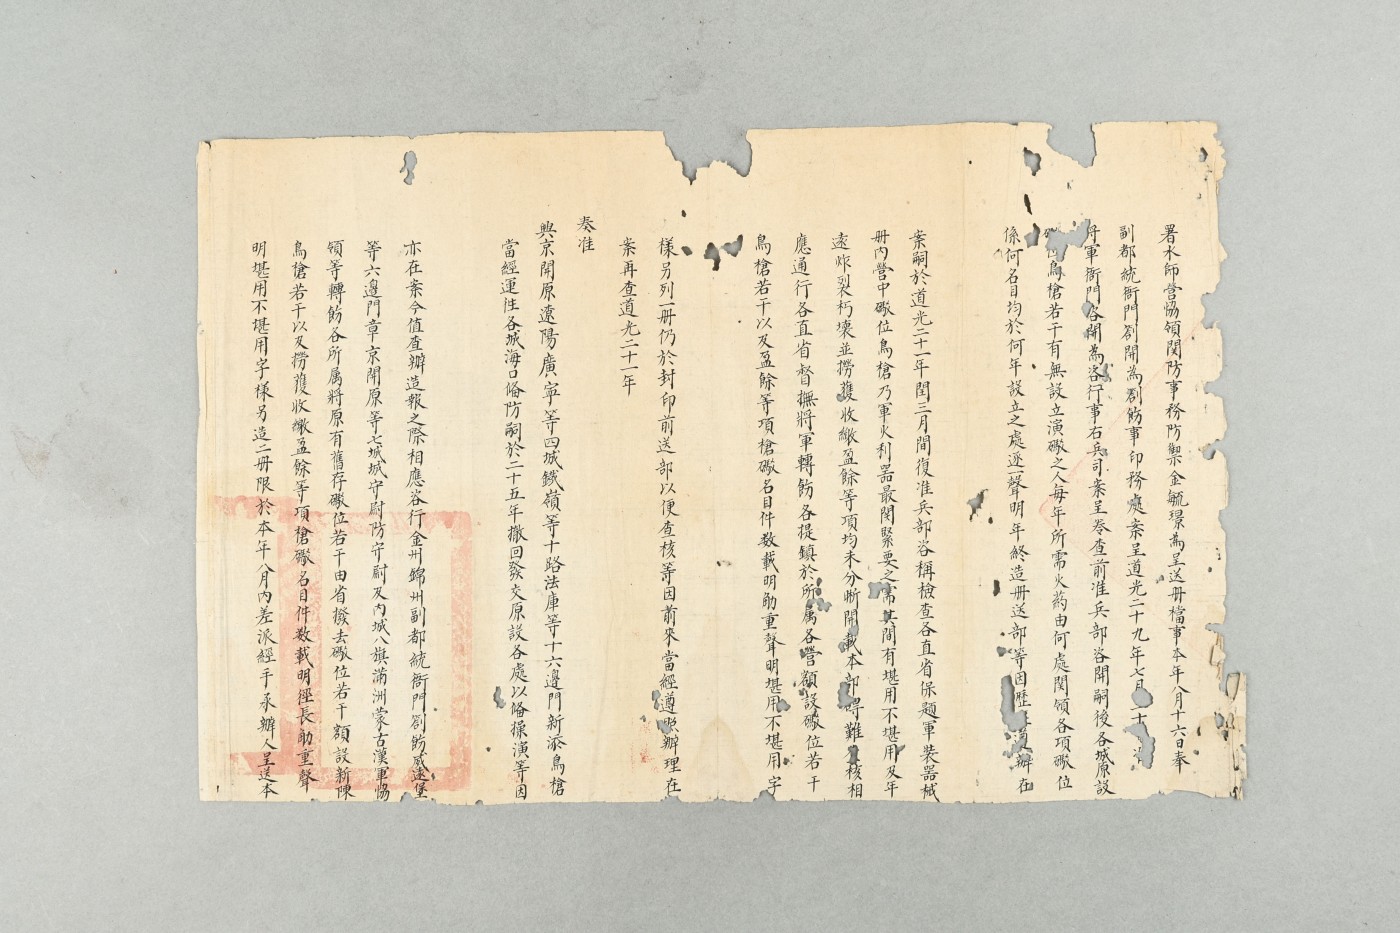 署水師營協領関防事務防禦金毓環為呈送册檔事本年八月十六日奉
副都統衙門劄開為劄飭事印務處案呈道光二十九年七月二十
將軍衙門咨開為咨行事右兵司案呈卷查前准兵部咨開嗣後各城原設
鳥槍若干有無設立演礮之人每年所需火葯由何處関領各項礮位
係何名目均於何年設立之處逐一聲明年終造册送部等因歷辦在
案嗣於道光二十一年閏三月間復准兵部咨稱檢查各直省保題軍裝器械
册內營中礮位鳥槍乃軍火利器最関緊要之需其間有堪用不堪用及年
遠炸裂朽壞並撈獲收繳盈餘等項均未分晣開載本部碍難核相
應通行各直省督撫將軍轉飭各提鎮於所属各營額設礮位若干
鳥槍若干以及盈餘等項槍礮名目件数載明觔重聲明堪用不堪用字
樣另列一册仍於封印前送部以便查核等因前來當經遵照辦理在
案再查道光二十一年
奏准
興京開原遼陽廣寧等四城鐵嶺等十路法庫等十六邊門新添鳥槍
當經運徃各城海口俻防嗣於二十五年撤回發交原設各處以俻操演等因
亦在案今值查辦造報之際相應咨行金州錦州副都統衙門劄飭威遠堡
等六邊門章京開原等七城城守尉防守尉及內城八旗滿洲蒙古漢軍協
領等轉飭各所属將原有舊存礮位若干由省撥去礮位若干額設新陳
鳥槍若干以及撈獲收繳盈餘等項槍礮名目件数載明徑長觔重聲
明堪用不堪用字樣另造二册限於本年八月內差派經手承辦人呈送本